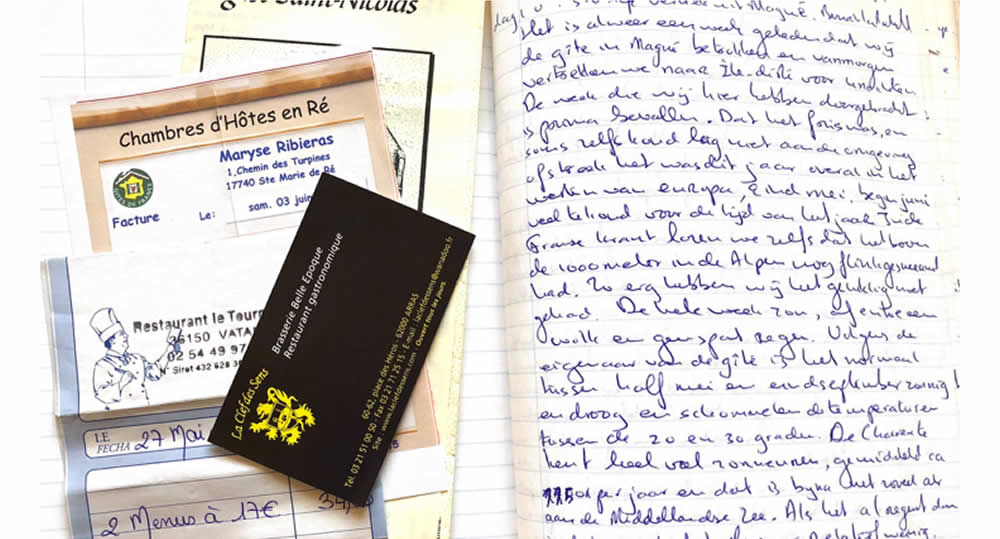 Saint-Nicolas
Chambres d'Hôtes en Ré
Maryse Ribieras
1, Chemin des Turpines
17740 Ste Marie de Ré
GÎTES DE FRANCE
Facture
Le:
sam. 03 juin
Restaurant le Tour
36150 VATA
02 54 49 97
N° Siret 432 628 3
LE
FECHA 27 Mai
2 Menus à 17€
La Clef des Sens
Brasserie Belle Epoque
Restaurant gastronomique
60-62, place des Héros - 62000 ARRAS
Tél. 03 21 51 00 50 - Fax 03 21 71 25 15 - E.mail : laclefdessens@wanadoo.fr
Site : www.laclefdessens.com - Ouvert tous les jours.
Het is alweer een week geleden dat wij
de gîte in Magné betrokken en vanmorgen
vertrekken we naar Île de Ré voor
De week die wij hier hebben doorgebracht
is prima bevallen. Dat het fris was, en
soms zelfs koud lag niet aan de omgeving
het was dit jaar overal in het
westen van europa eind mei, begin juni
veel te koud voor de tijd van het jaar. In de
Franse krant lezen we zelfs dat het boven
de 1000 meter in de Alpen nog flink gesneeuwd
had. Zo erg hebben wij het gelukkig niet
gehad. De hele week zon, af en toe een
wolk en geen spat regen. Volgens de
eigenaar van de gîte is het normaal
tussen half mei en eind september zonnig
en droog en schommelen de temperaturen
tussen de 20 en 30 graden. De Charente
kent heel veel zonneuren, gemiddeld ca
per jaar en dat is bijna net zoveel als
aan de Middellandse Zee. Als het al regent dan